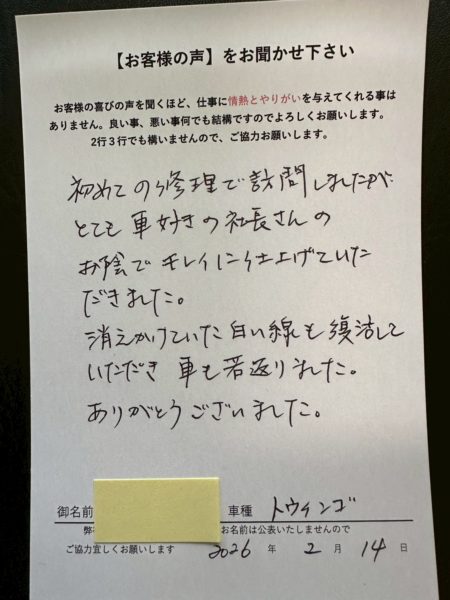 【お客様の声】をお聞かせ下さい
お客様の喜びの声を聞くほど、仕事に情熱とやりがいを与えてくれる事は
ありません。良い事、悪い事何でも結構ですのでよろしくお願いします。
2行3行でも構いませんので、ご協力お願いします。
初めての修理で訪問しましたが
とても車好きの社長さんの
お陰でキレイに仕上げていた
だきました。
消えかけていた白い線も復活して
いただき 車も若返りました。
ありがとうございました。
御名前 車種 トウィンゴ
弊 お名前は公表いたしませんので
ご協力宜しくお願いします 2026 年 2 月 14 日